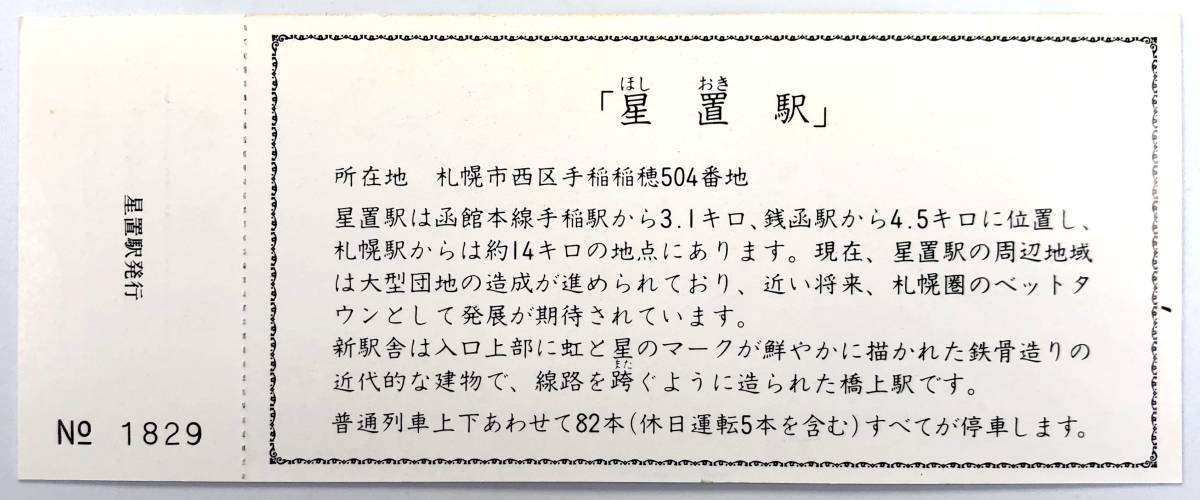 ほし おき
「星置駅」
所在地　札幌市西区手稲稲穂504番地
星置駅は函館本線手稲駅から3.1キロ、銭函駅から4.5キロに位置し、
札幌駅からは約14キロの地点にあります。現在、星置駅の周辺地域
は大型団地の造成が進められており、近い将来、札幌圏のベットタ
ウンとして発展が期待されています。
新駅舎は入口上部に虹と星のマークが鮮やかに描かれた鉄骨造りの
また
近代的な建物で、線路を跨ぐように造られた橋上駅です。
普通列車上下あわせて82本(休日運転5本を含む)すべてが停車します。
星置駅発行
№ 1829